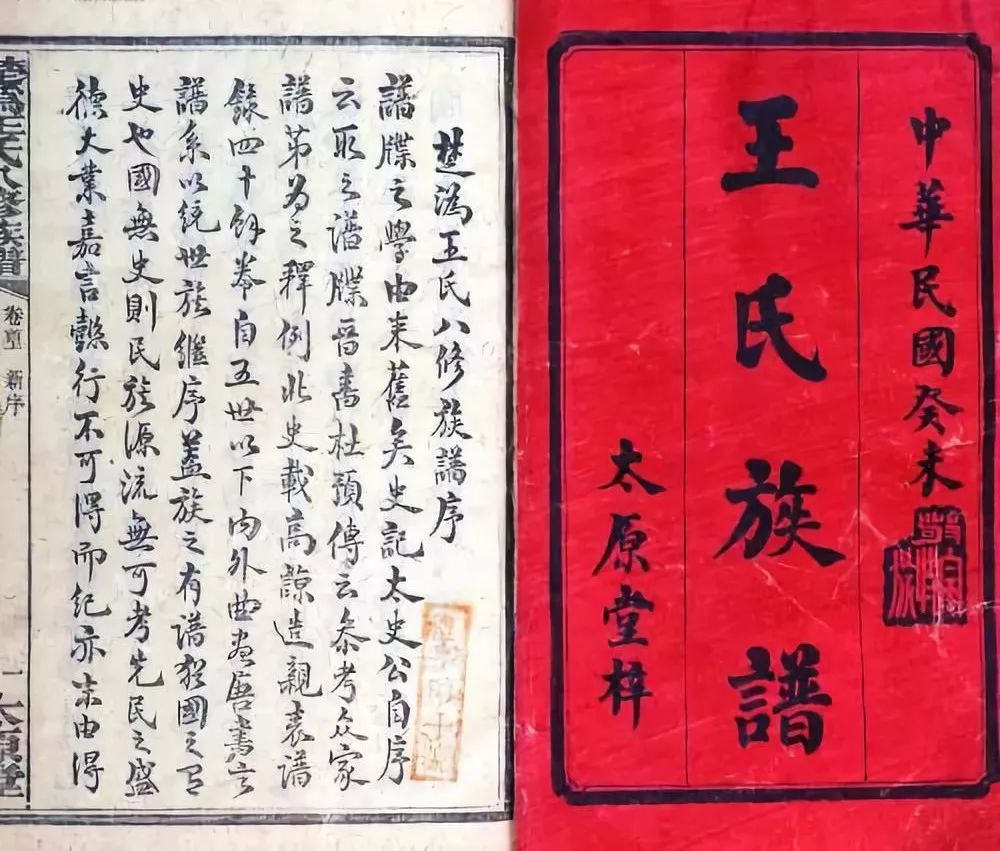 中華民國癸未
王氏族譜
太原堂梓
楚溈王氏八修族譜序
譜牒之學由來舊矣史記太史公自序
云取之譜牒晉書杜預傳云叅考众家
譜第为之釋例北史載高諒造親表譜
錄四十餘卷自五世以下内外曲盡唐書言
譜系以統世族继序蓋族之有譜猶國之有
史也國無史則民族源流無可考先民之盛
德大業嘉言懿行不可得而纪亦末由得
楚溈王氏八修族譜
卷首
新序
一
太原堂